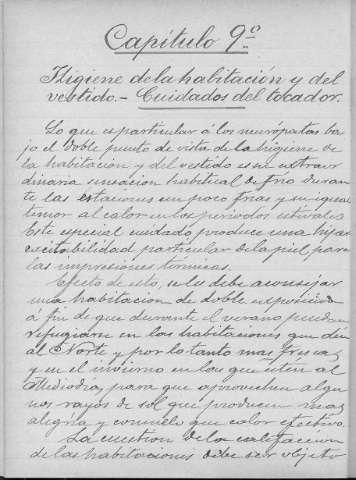 Capítulo 9º
Higiene de la habitación y del
vestido.- Cuidados del tocador.
Lo que es particular á los neurópatas ba
jo el doble punto de vista de la higiene de
la habitación y del vestido es su extraor
dinaria sensacion habitual de frio duran
te las estaciones un poco frias y su igual
temor al calor en los periodos estivales
Este especial cuidado produce una hiper
excitabilidad particular de la piel para
las impresiones termicas.
Efecto de esto, se les debe aconsejar
una habitacion de doble exposición
á fin de que durante el verano puedan
refugiarse en las habitaciones que dén
al Norte y por lo tanto mas frescas,
y en el invierno en las que estén al
Mediodia, para que aprovechen algu
nos rayos de sol que producen mas
alegria y consuelo que calor efectivo.
La cuestion de la calefaccion
de las habitaciones debe ser objeto